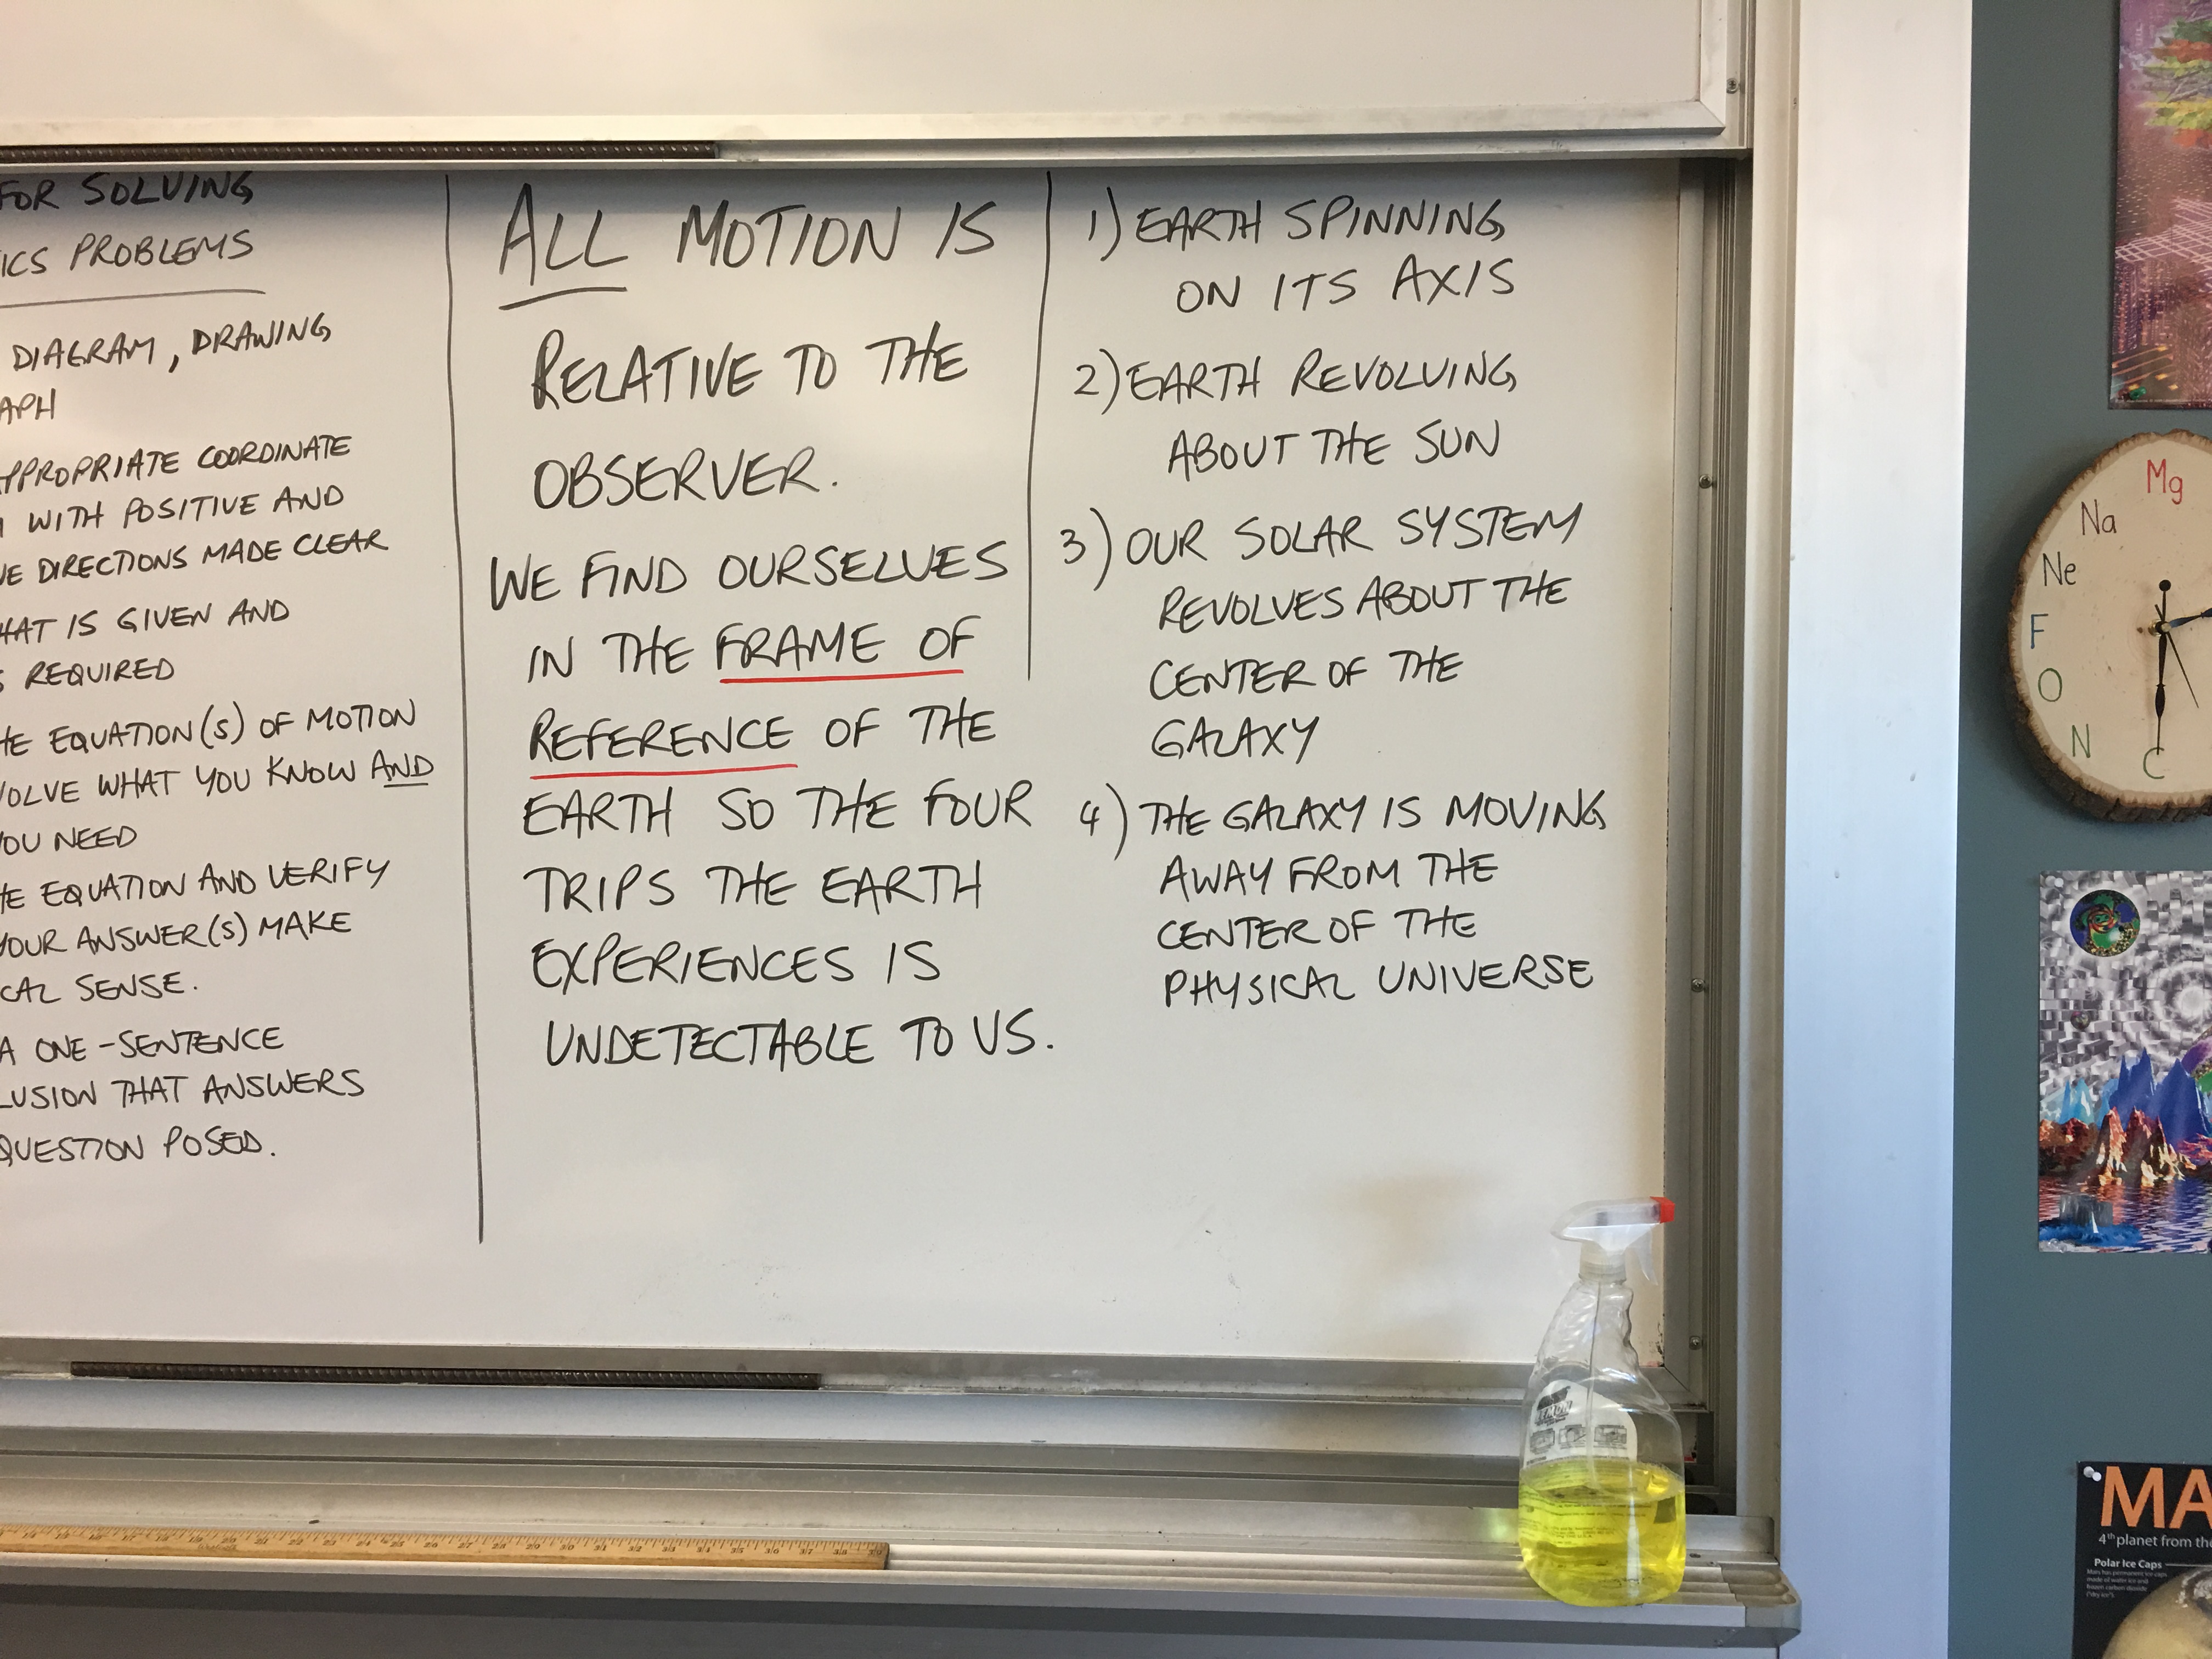 FOR SOLVING
ICS PROBLEMS
DIAGRAM, DRAWING
APH
APPROPRIATE COORDINATE
WITH POSITIVE AND
VE DIRECTIONS MADE CLEAR
HAT IS GIVEN AND
S REQUIRED
HE EQUATION(S) OF MOTION
VOLVE WHAT YOU KNOW AND
YOU NEED
HE EQUATION AND VERIFY
YOUR ANSWER(S) MAKE
CAL SENSE.
A ONE-SENTENCE
LUSION THAT ANSWERS
QUESTION POSED.
ALL MOTION IS
RELATIVE TO THE
OBSERVER.
WE FIND OURSELVES
IN THE FRAME OF
REFERENCE OF THE
EARTH SO THE FOUR
TRIPS THE EARTH
EXPERIENCES IS
UNDETECTABLE TO US.
1) EARTH SPINNING
ON ITS AXIS
2) EARTH REVOLVING
ABOUT THE SUN
3) OUR SOLAR SYSTEM
REVOLVES ABOUT THE
CENTER OF THE
GALAXY
4) THE GALAXY IS MOVING
AWAY FROM THE
CENTER OF THE
PHYSICAL UNIVERSE
Mg
Na
Ne
F
O
N
C
MA
4th planet from the
Polar Ice Caps